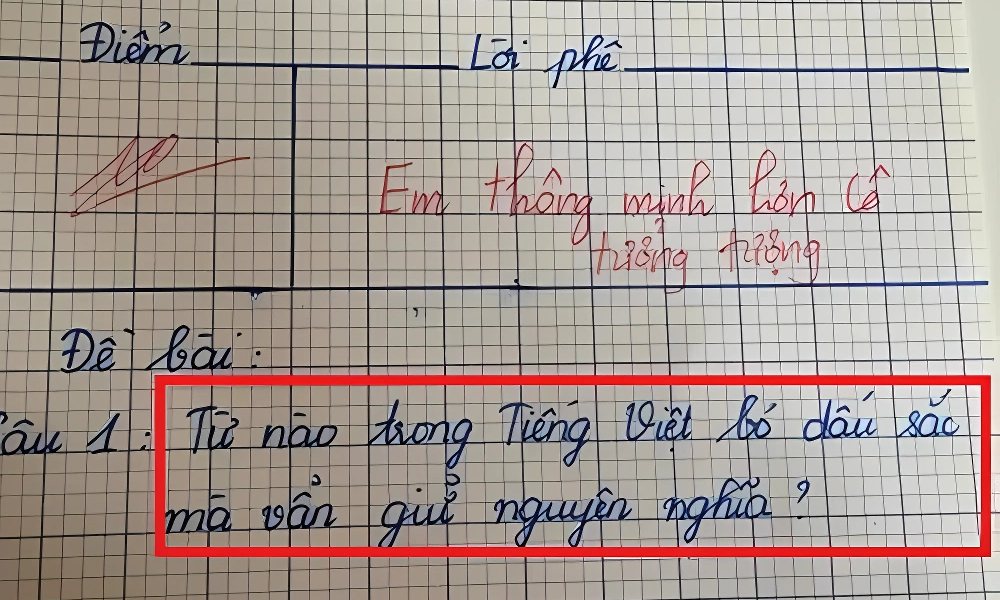 Điểm Lời phê
Em thông minh hơn Cô
tưởng tượng
Đề bài:
Câu 1: Từ nào trong Tiếng Việt bỏ dấu sắc
mà vẫn giữ nguyên nghĩa?